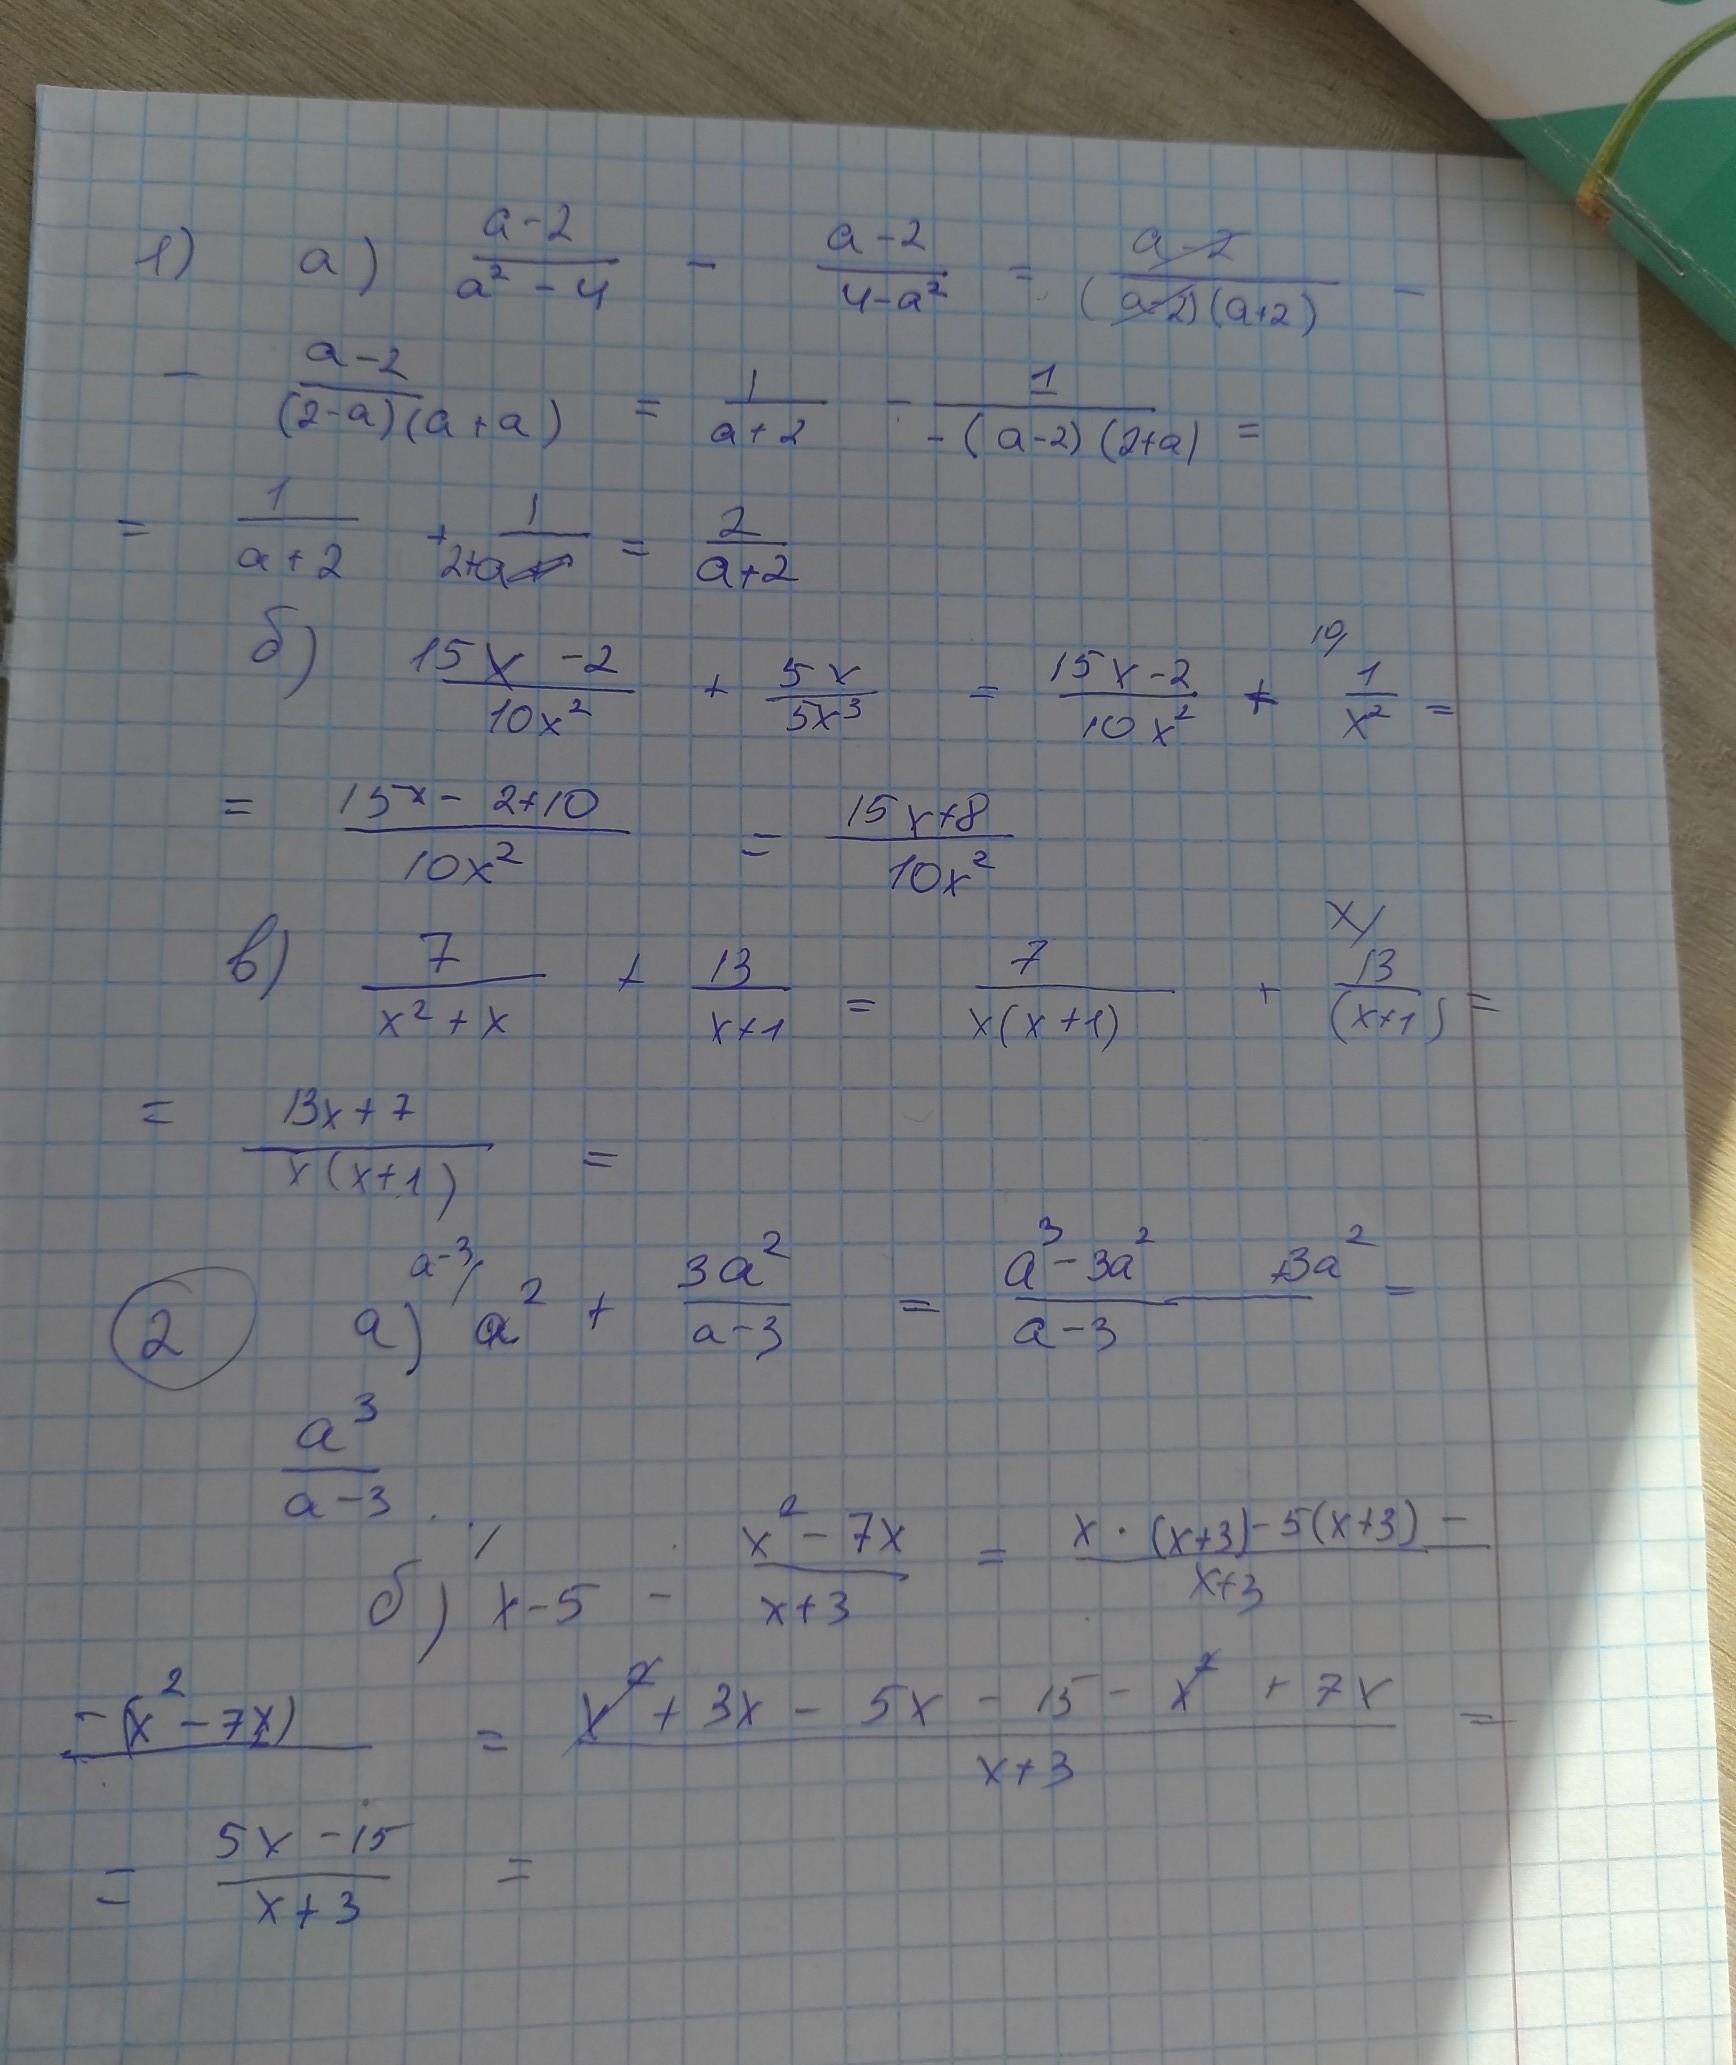 1) а) (a-2)/(a² - 4) - (a-2)/(4-a²) = (a-2)/((a-2)(a+2)) -
- (a-2)/((2-a)(a+a)) = 1/(a+2) - 1/(-(a-2)(2+a)) =
= 1/(a+2) + 1/(2+a) = 2/(a+2)
б) (15x-2)/(10x²) + 5x/(5x³) = (15x-2)/(10x²) + 10/ 1/x² =
= (15x-2+10)/(10x²) = (15x+8)/(10x²)
в) 7/(x²+x) + 13/(x+1) = 7/(x(x+1)) + x/ 13/(x+1) =
= (13x+7)/(x(x+1)) =
2 а) a-3/ a² + 3a²/(a-3) = (a³-3a² +3a²)/(a-3) =
a³/(a-3)
б) x-5 - (x²-7x)/(x+3) = (x·(x+3)-5(x+3) -)/(x+3)
-(x²-7x) = (x²+3x-5x-15-x²+7x)/(x+3) =
= (5x-15)/(x+3) =